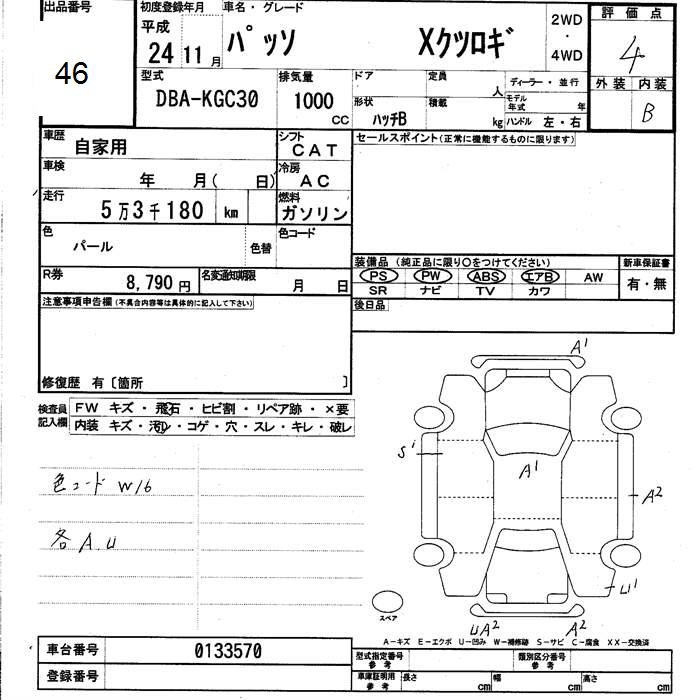 出品番号
46
初度登録年月
平成
24 11 月
車名・グレード
パッソ Xクツロギ
2WD
・
4WD
評価点
4
外装 内装
B
型式
DBA-KGC30
排気量
1000
CC
ドア
定員
人
ディーラー・並行
形状
ハッチB
積載
kg
モデル年式
年
ハンドル 左・右
車歴
自家用
シフト
CAT
セールスポイント(正常に機能するものに限ります)
車検
年 月( 日)
冷房
AC
走行
5万3千180 km
燃料
ガソリン
色
パール
色替
色コード
装備品(純正品に限り○をつけてください)
新車保証書
PS PW ABS エアB AW
SR ナビ TV カワ
有・無
R券
8,790円
名変通知期限
月 日
後日品
注意事項申告欄(不具合内容等は具体的に記入して下さい)
修復歴 有〔箇所 〕
検査員
記入欄
FW キズ・飛石・ヒビ割・リペア跡・×要
内装 キズ・汚レ・コゲ・穴・スレ・キレ・破レ
色コード W16
各 A.U
A1
S1
A1
A2
U1
UA2
A2
スペア
A-キズ E-エクボ U-凹み W-補修跡 S-サビ C-腐食 XX-交換済
車台番号
0133570
登録番号
型式指定番号
参考
類別区分番号
参考
車庫証明用
参考
長さ
cm
幅
cm
高さ
cm